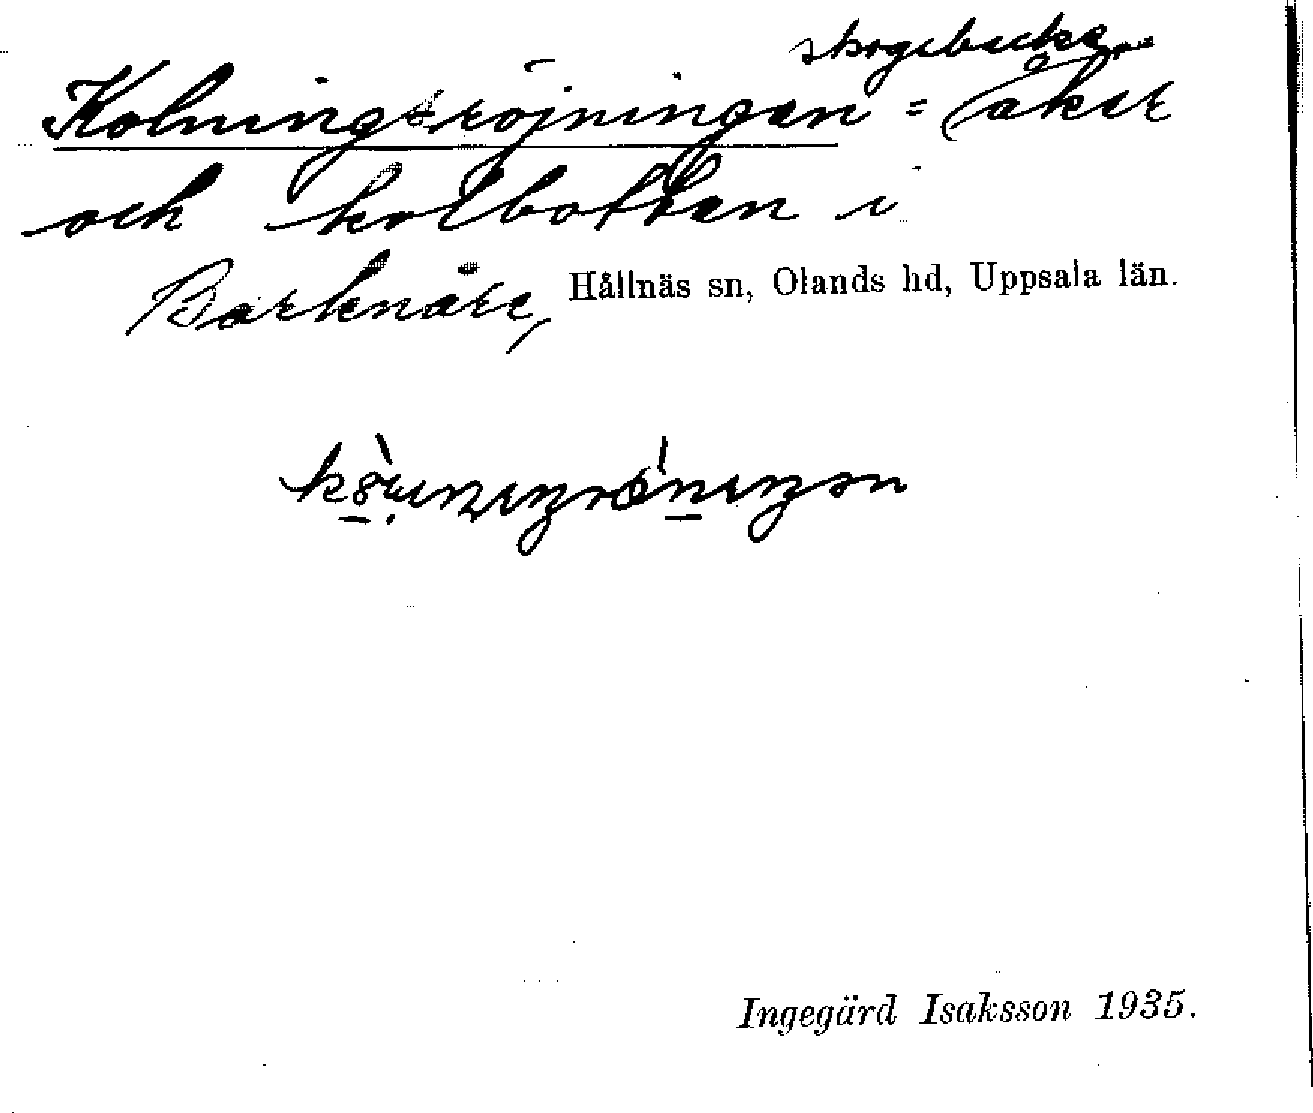 skogsbacke
Kolningsröjningen = åker
och kolbotten i
Barknåre, Hållnäs sn, Olands hd, Uppsala län.
Ingegärd Isaksson 1935.